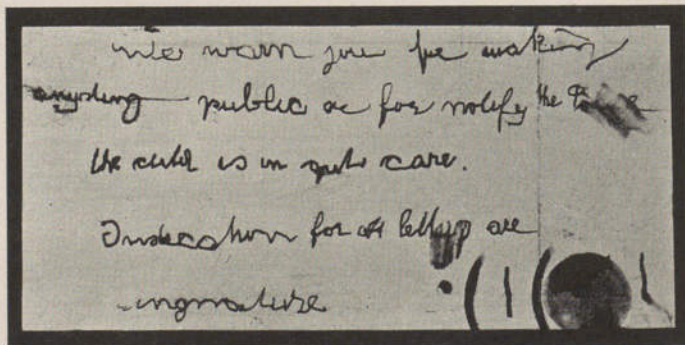 We warn you for making
anyding public or for notify the
the child is in gut care.
Indication for all letters are
singnature